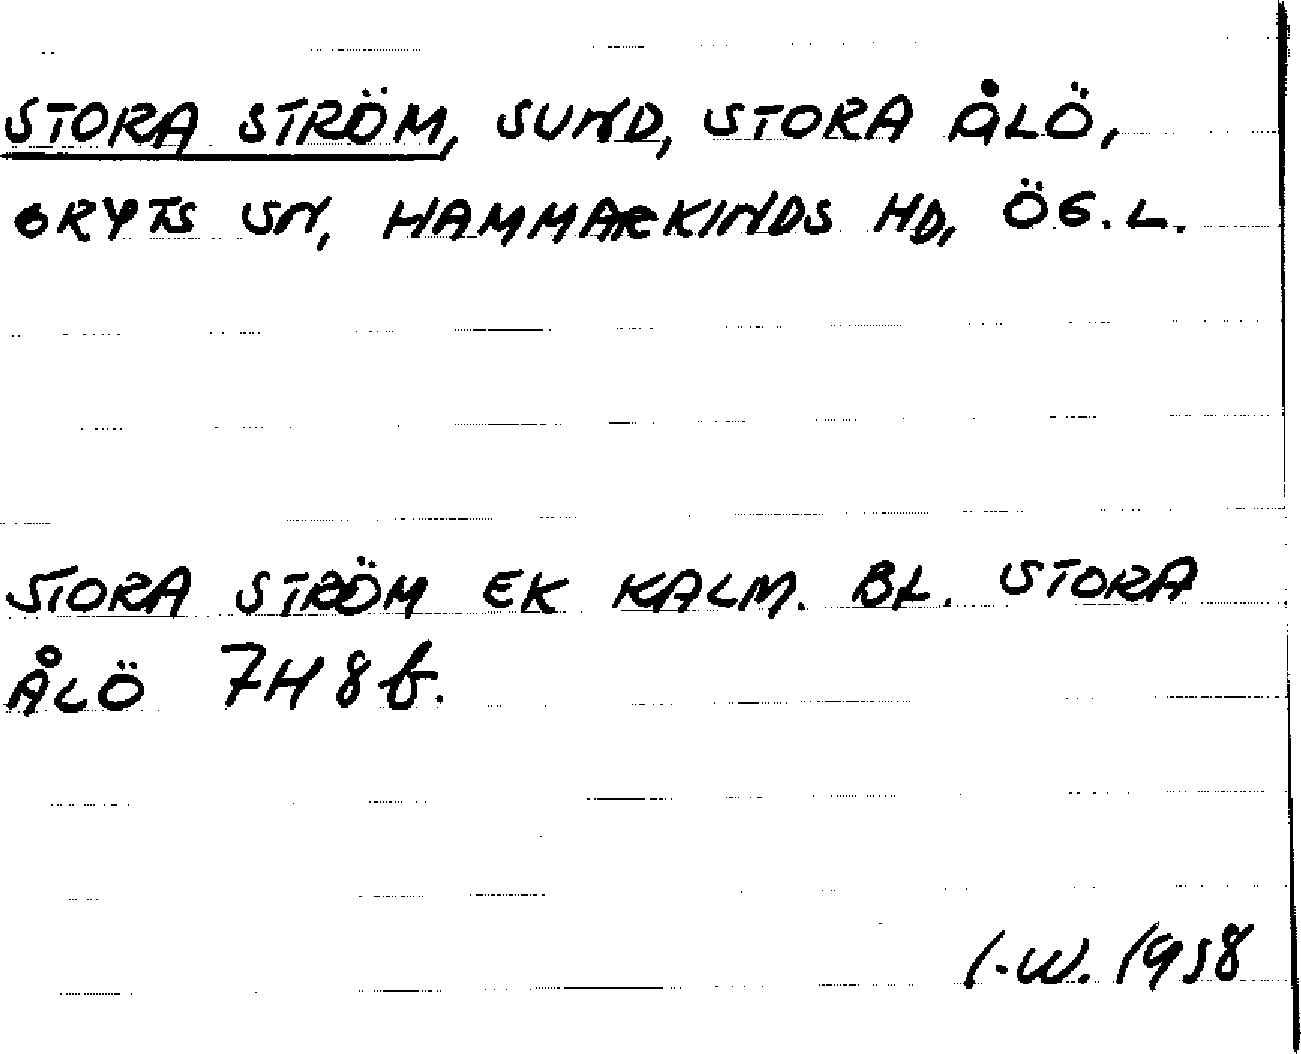 STORA STRÖM, SUND, STORA ÅLÖ,
GRYTS SN, HAMMARKINDS HD, ÖG.L.
STORA STRÖM EK KALM. BL. STORA
ÅLÖ 7H8f.
I.W. 1958